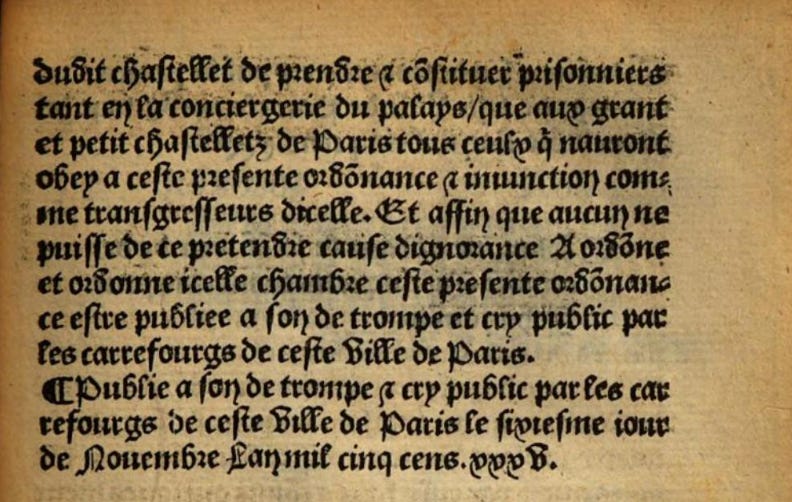 dudit chastellet de prendre ⁊ cōstituer prisonniers
tant en la conciergerie du palays/que aux grant
et petit chastelletz de Paris tous ceulx q̄ nauront
obey a ceste presente ordōnance ⁊ iniunction com⸗
me transgresseurs dicelle. Et affin que aucun ne
puisse de ce pretendre cause dignorance A ordōne
et ordonne icelle chambre ceste presente ordōnan⸗
ce estre publiee a son de trompe et cry public par
les carrefourgs de ceste Ville de Paris.
¶ Publie a son de trompe ⁊ cry public par les car
refourgs de ceste Ville de Paris le sixiesme iour
de Nouembre Lan mil cinq cens. xxxV.